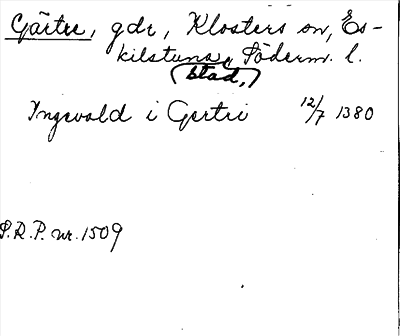 Gärtre, gdr, Klosters sn, Es-
kilstuna stad, Söderm. l.
Ingevald i Gertri 12/7 1380
S.R.P. nr. 1509